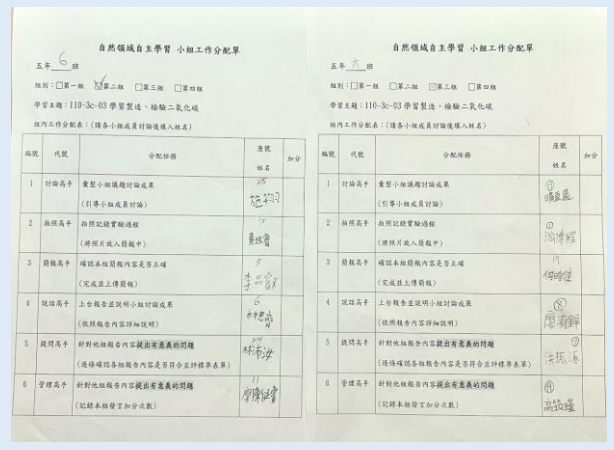 自然領域自主學習 小組工作分配單
五年 6 班
組別：□第一組 ☑第二組 □第三組 □第四組
學習主題：110-3c-03 學習製造、檢驗二氧化碳
組內工作分配表：(請各小組成員討論後填入姓名)
編號 代號 分配任務 座號 姓名 加分
1 討論高手 彙整小組議題討論成果
(引導小組成員討論)
2 拍照高手 拍照記錄實驗過程
(將照片放入簡報中)
3 簡報高手 確認本組簡報內容是否正確
(完成並上傳簡報)
4 說話高手 上台報告並說明小組討論成果 6
(依照報告內容詳細說明)
5 提問高手 針對他組報告內容提出有意義的問題
(逐條確認各組報告內容是否符合互評標準表單)
6 管理高手 針對他組報告內容提出有意義的問題 11
(記錄本組發言加分次數)
自然領域自主學習 小組工作分配單
五年 六 班
組別：□第一組 □第二組 ☑第三組 □第四組
學習主題：110-3c-03 學習製造、檢驗二氧化碳
組內工作分配表：(請各小組成員討論後填入姓名)
編號 代號 分配任務 座號 姓名 加分
1 討論高手 彙整小組議題討論成果
(引導小組成員討論)
2 拍照高手 拍照記錄實驗過程
(將照片放入簡報中)
3 簡報高手 確認本組簡報內容是否正確
(完成並上傳簡報)
4 說話高手 上台報告並說明小組討論成果 ⑧
(依照報告內容詳細說明)
5 提問高手 針對他組報告內容提出有意義的問題
(逐條確認各組報告內容是否符合互評標準表單)
6 管理高手 針對他組報告內容提出有意義的問題
(記錄本組發言加分次數)